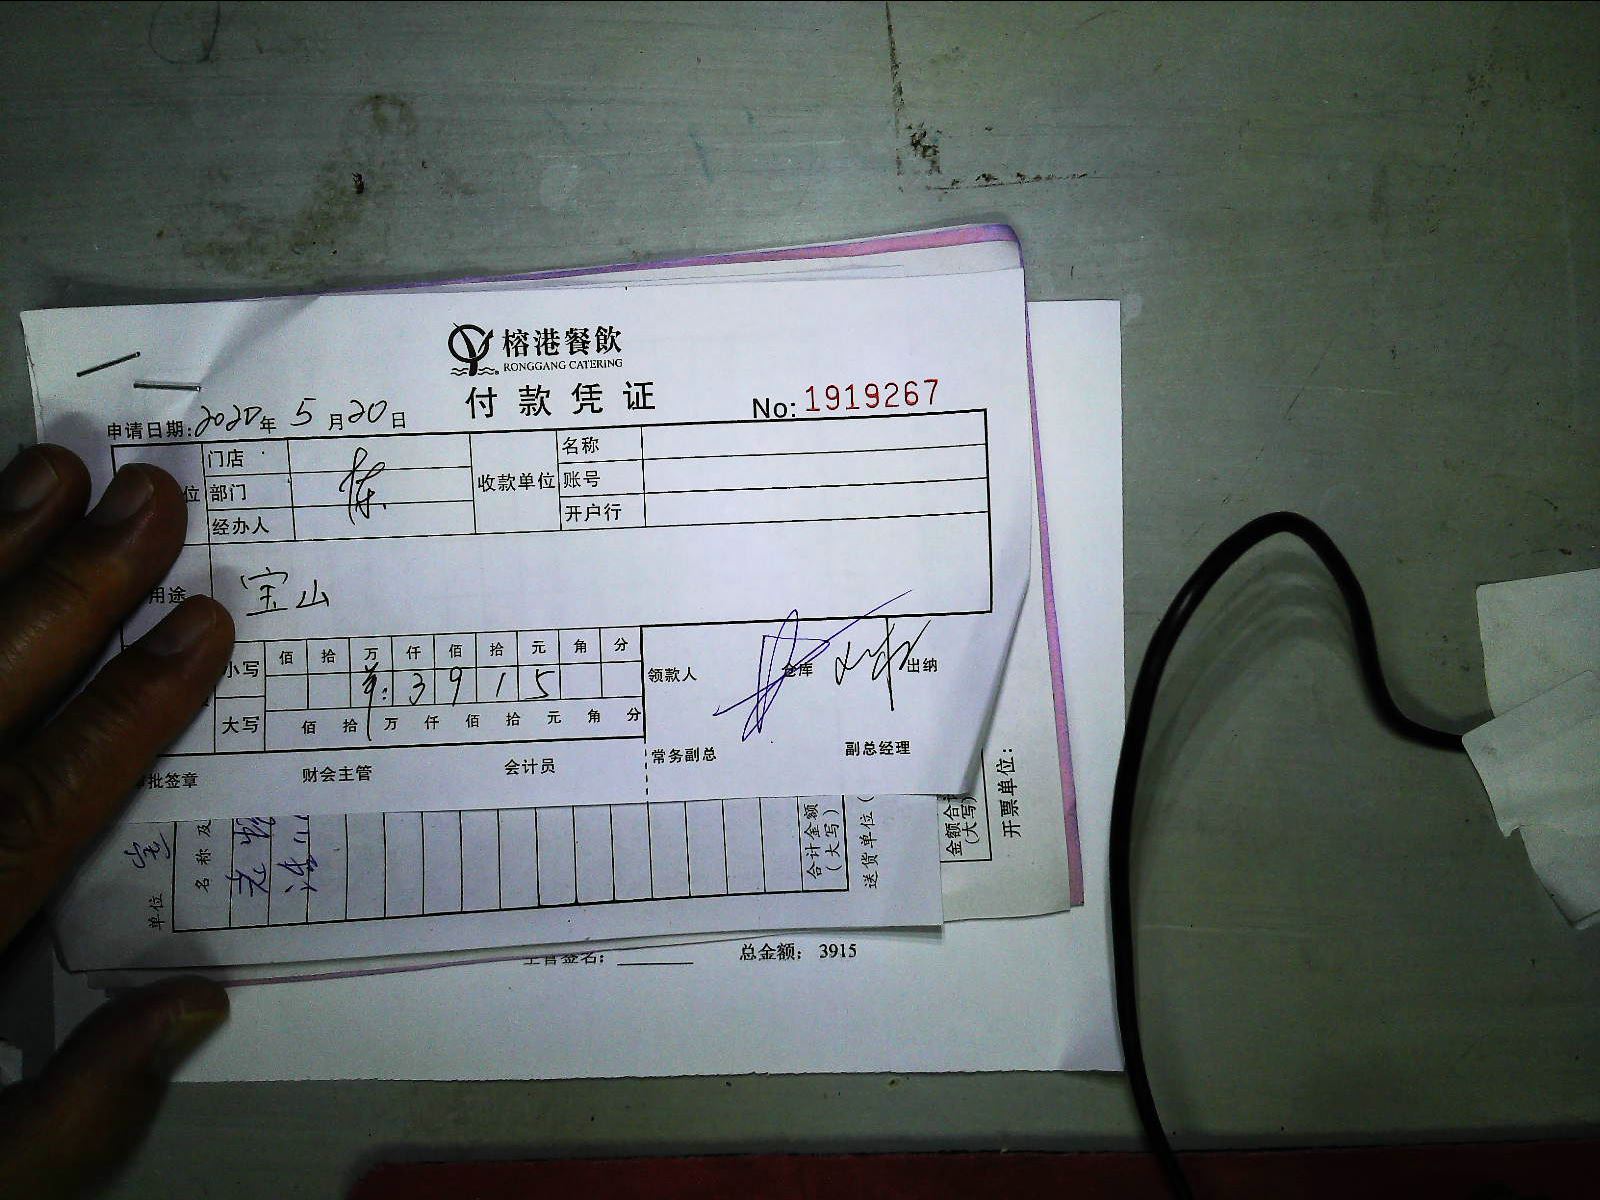 榕港餐飲
RONGGANG CATERING
付款凭证
No: 1919267
申请日期: 2020年 5月20日
位 门店 收款单位 名称
部门 陈 账号
经办人 开户行
用途 宝山
小写 佰 拾 万 仟 佰 拾 元 角 分
¥: 3 9 1 5
大写 佰 拾 万 仟 佰 拾 元 角 分
领款人 仓库 出纳
常务副总 副总经理
批签章 财会主管 会计员
单位 宝
名称及
合计金额
(大写)
送货单位(
金额合计
(大写)
开票单位:
主管签名: 总金额: 3915